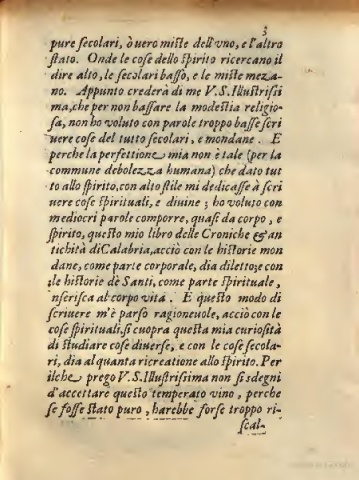 3
pure secolari, ò uero miste dell'vno, e l'altro
stato. Onde le cose dello spirito ricercano il
dire alto, le secolari basso, e le miste meza-
no. Appunto crederà di me V. S. Illustrissi
ma, che per non bassare la modestia religio-
sa, non ho voluto con parole troppo basse scri
uere cose del tutto secolari, e mondane. E
perche la perfettione mia non è tale (per la
commune debolezza humana) che dato tut
to allo spirito, con alto stile mi dedicasse à scri
uere cose spirituali, e diuine; ho voluto con
mediocri parole comporre, quasi da corpo, e
spirito, questo mio libro delle Croniche & an
tichità di Calabria, acciò con le historie mon
dane, come parte corporale, dia diletto; e con
le historie de Santi, come parte spirituale,
nserisca al corpo vita. E questo modo di
scriuere m'è parso ragioneuole, acciò con le
cose spirituali si cuopra questa mia curiosità
di studiare cose diuerse, e con le cose secola-
ri, dia alquanta ricreatione allo spirito. Per
ilche prego V. S. Illustrissima non si sdegni
d'accettare questo temperato vino, perche
se fosse stato puro, harebbe forse troppo ri-
scal-